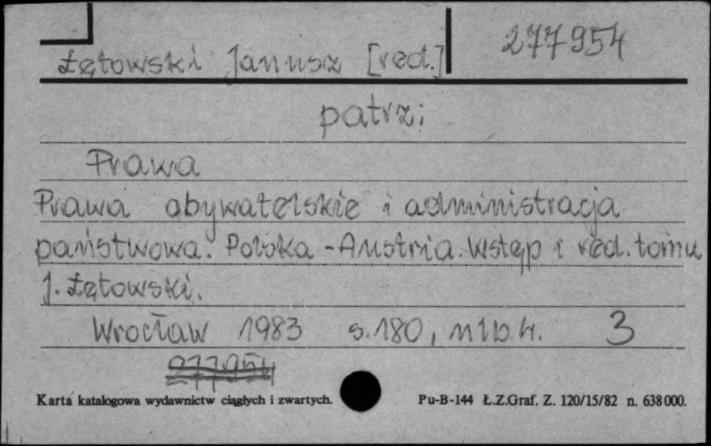 Łętowski Janusz [red.] 277954
patrz:
Prawa
Prawa obywatelskie i administracja
państwowa. Polska - Austria. Wstęp i red. tomu
J. Łętowski.
Wrocław 1983 s. 180, nlb. 4. 3
277954
Karta katalogowa wydawnictw ciągłych i zwartych. Pu-B-144 Ł.Z.Graf. Z. 120/15/82 n. 638000.